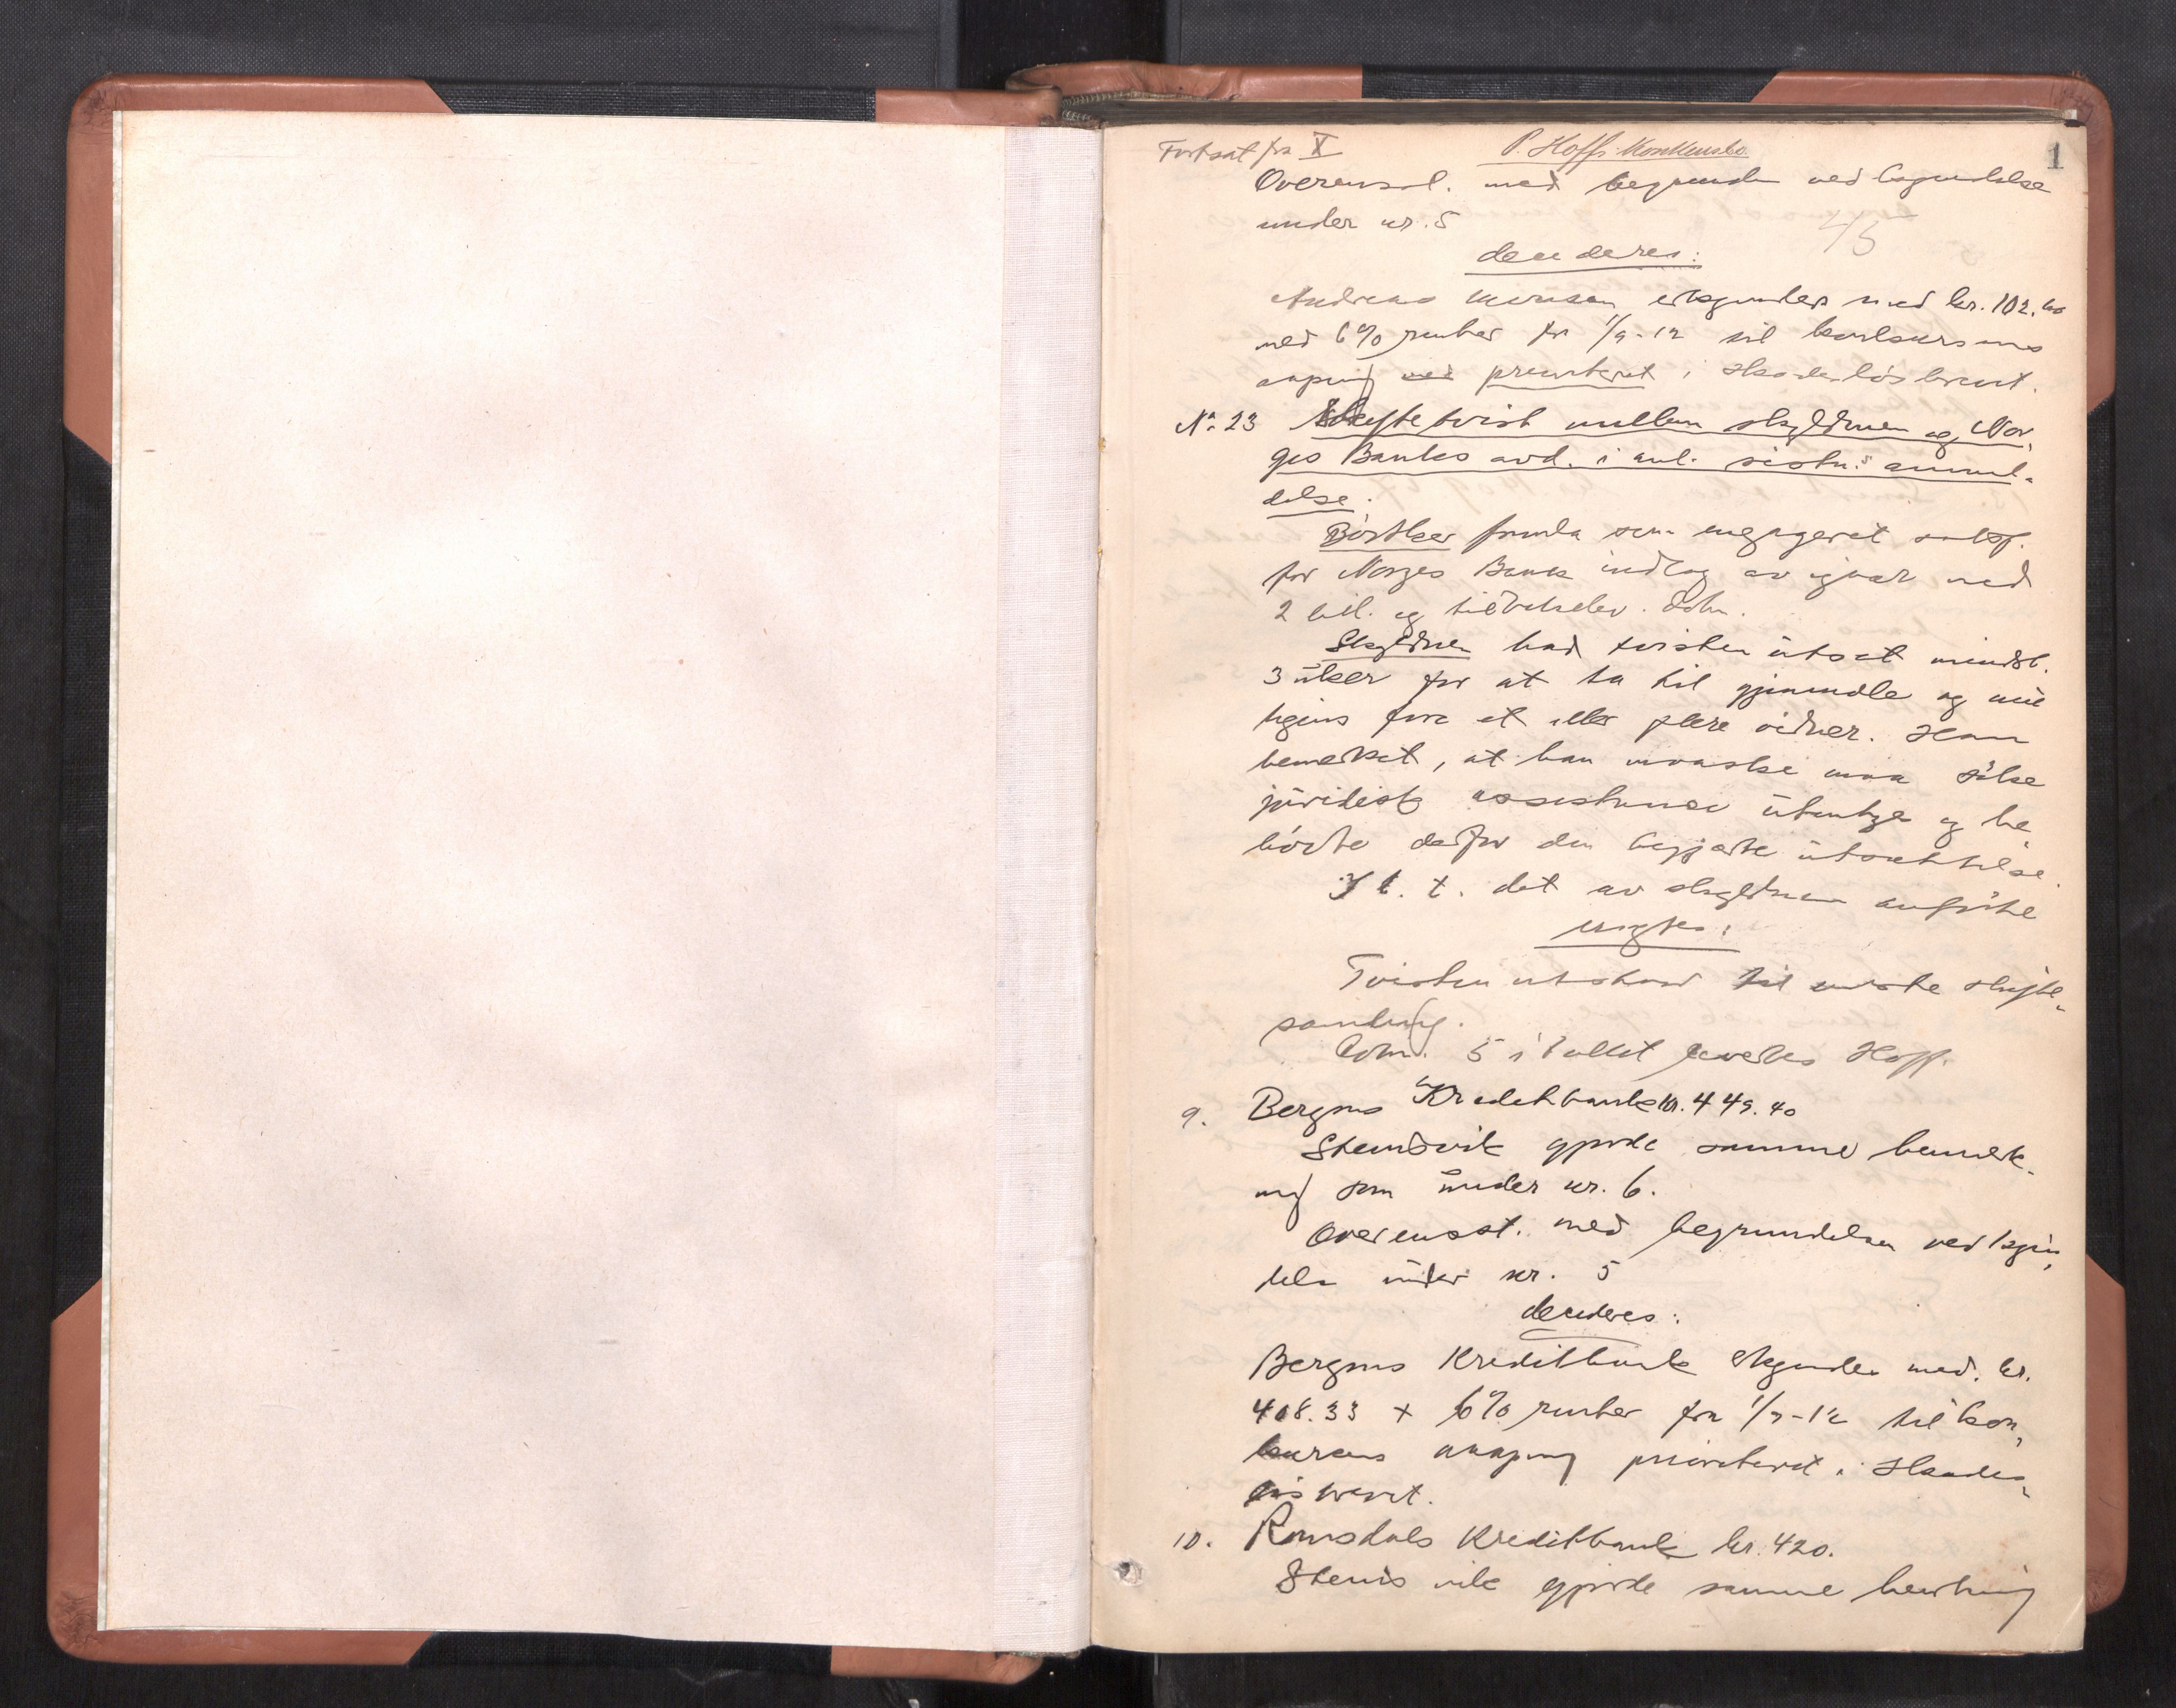 Fortsat fra X P. Hoffs Konkursbo. 1
Overensst. med begrunden ved begyndelse
under nr. 5
4/5
decideres:
Andreas erkjendes med kr. 102.60
med 6% renter fra 1/9-12 til konkursens
aapning med prioritet i Skadesløsbrevet.
No. 23 Skiftetvist mellem skyldneren og Nor,
ges Banks avd. i anl. sistn.s anmel-
delse.
Bødtker fremla som engageret saksf.
for Norges Bank indlæg av igaar med
2 bil. og tilbakelev. Dokn.
Skyldneren bad tvisten utsat mindst
3 uker for at ta til gjenmæle og mu
ligens føre et eller flere vidner. Han
bemerket, at han maaske maa søke
juridisk assistance utenbys og be
høvte derfor den begjærte utsættelse.
I h. t. det av skyldneren anførte
vigtes:
Tvisten utstaar til næste skifte-
samling.
Dokn. 5 i tallet leveres Hoff.
9. Bergens Kreditbank kr. 449.40
Stensvik gjorde samme bemerk-
ning som under nr. 6.
Overensst. med begrundelsen ved begyn,
delse under nr. 5
decideres:
Bergens Kreditbank erkjendes med kr.
408.33 + 6% renter fra 1/9-12 til kon,
kursens aapning prioritet i Skades-
løsbrevet.
10. Romsdals Kreditbank kr. 420.
Stensvik gjorde samme bemerkning